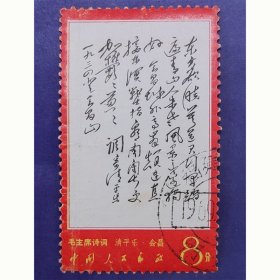 东方欲晓莫道君行早踏
遍青山人未老风景这边独
好会昌城外高峰颠连直
接东溟战士指看南粤更
加郁郁葱葱 调寄清平乐
一九三四年
毛主席诗词 清平乐·会昌
8分
中国人民邮政